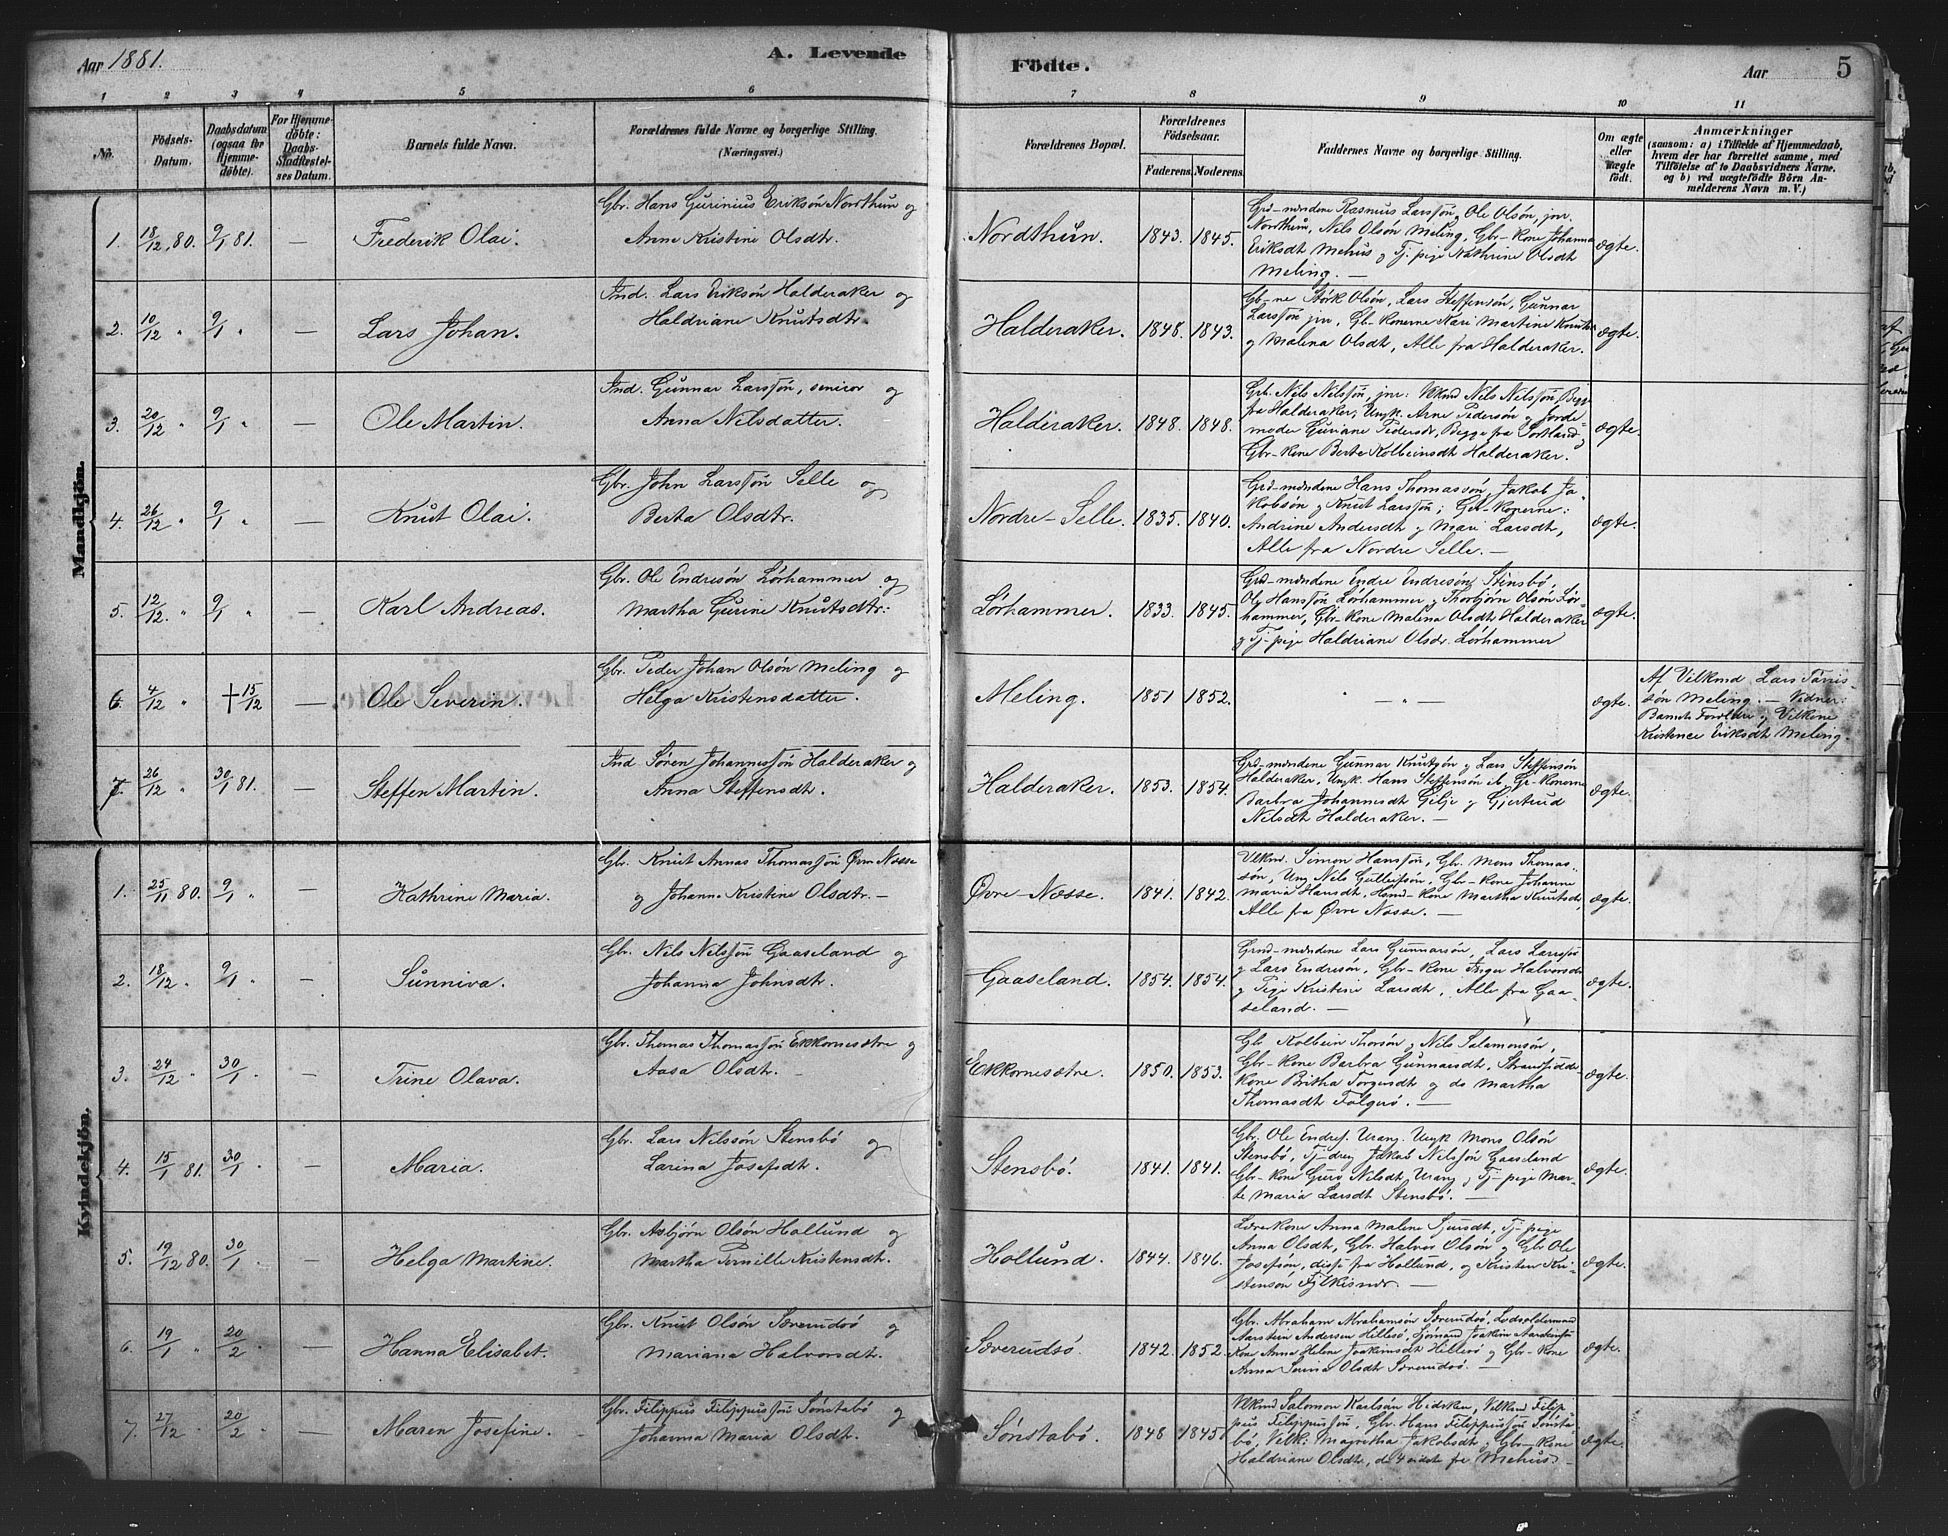 Aar 1881.
A. Levende
Födte.
Aar
5
1 2 3 4 5 6 7 8 9 10 11
No.
Födsels-
Datum.
Daabsdatum
(ogsaa for
Hjemme-
döbte).
For Hjemme-
döbte:
Daabs-
Stadfæstel-
ses Datum.
Barnets fulde Navn.
Forældrenes fulde Navne og borgerlige Stilling.
(Næringsvei.)
Forældrenes Bopæl.
Forældrenes
Födselsaar.
Faderens.
Moderens.
Faddernes Navne og borgerlige Stilling.
Om ægte
eller
uægte
født.
Anmærkninger
(saasom: a) i Tilfælde af Hjemmedaab,
hvem der har forrettet samme, med
Tilföielse af to Daabsvidners Navne,
og b) ved uægtefödte Börn An-
melderens Navn m. V.)
Mandkjön.
1. 18/12 80. 9/1 81. — Frederik Olai.
Gbr. Hans Gurinius Eriksön Nordthun og
Anne Kristine Olsdtr.
Nordthun. 1843. 1845.
Grd-mændene Rasmus Larssön, Ole Olsön, jnr.
Nordthun, Nils Olsön Meling, Gbr-Kone Johanna
Eriksdt Mehus og Tj. pige Kathrine Olsdt
Meling. —
ægte.
2. 10/12 " 9/1 " — Lars Johan.
Ind. Lars Eriksön Halderaker og
Haldriane Knutsdtr.
Halderaker. 1848. 1843.
Gb-ne Störk Olsön, Lars Steffensön, Gunnar
Larssön jnr, Gbr Konerne Kari Martine Knuts
og Malena Olsdt, Alle fra Halderaker.
ægte.
3. 20/12 " 9/1 " — Ole Martin.
Ind. Gunnar Larssön, senior og
Anna Nilsdatter.
Halderaker. 1848. 1848.
Grb. Nils Nilssön, jnr: Vlkmd Nils Nilssön, Begge
fra Halderaker, Ungk. Arne Pedersön og Jorde-
moder Guriane Pedersdt, Begge fra Sortland,
Gbr-Kone Berte Kolbeinsdt Halderaker.
ægte.
4. 26/12 " 9/1 " — Knut Olai.
Gbr. John Larssön Selle og
Berta Olsdtr.
Nordre-Selle. 1835. 1840.
Grd-mændene Hans Thomassön, Jakob Ja-
kobsön og Knut Larssön; Gbr-Konerne:
Andrine Andersdt og Mari Larsdt,
Alle fra Nordre Selle. —
ægte.
5. 12/12 " 9/1 " — Karl Andreas.
Gbr. Ole Endresön Lörhammer og
Martha Gurine Knutsdtr:
Lörhammer. 1833. 1845.
Grd-mændene Endre Endresön Stensbö,
Ole Hanssön Lörhammer og Thorbjörn Olsön Lör-
hammer, Gbr-Kone Malena Olsdt Halderaker
og Tj-pige Haldriane Olsdr. Lörhammer
ægte.
6. 4/12 " † 15/12 — Ole Severin.
Gbr. Peder Johan Olsön Meling og
Helga Kristensdatter.
Meling. 1851 1852.
— " —
ægte.
Af Vilkmd Lars
sön Meling. — Vidner:
Barnets Forældre og Vilkone
Eriksdt Meling.
7. 26/12 " 30/1 81. — Steffen Martin.
Ind Sören Johannessön Halderaker og
Anna Steffensdt.
Halderaker. 1853. 1854.
Grd-mændene Gunnar Knutsön og Lars Steffensön
Halderaker, Ungk. Hans Steffensön ib, Gr-Konerne
Barbra Johannesdt Gilje og Gjertrud
Nilsdt Halderaker. —
ægte.
Kvindekjön.
1. 25/11 80. 9/1 " — Kathrine Maria.
Gbr. Knut Annas Thomassön Övre Næsse
og Johanna Kristine Olsdtr. —
Övre-Næsse. 1841. 1842.
Vlkmd. Simon Hanssön, Gbr. Mons Thomas-
sön, Ung Nils Gulleifsön, Gbr-Kone Johanne
Maria Hansdt, Kone Martha Knutsdt,
Alle fra Övre Næsse. —
ægte.
2. 18/12 " 9/1 " — Sünniva.
Gbr. Nils Nilssön Gaaseland og
Johanna Johnsdt.
Gaaseland. 1854. 1854.
Grud-mændene Lars Gunnarsön, Lars Larssön
og Lars Endresön, Gbr-Kone Inger Halvorsdt
og Pige Kristine Larsdt, Alle fra Gaa-
seland. —
ægte.
3. 24/12 " 30/1 " — Trine Olava.
Gbr. Thomas Thomassön Ekkornesætre og
Aasa Olsdtr. —
Ekkornesætre. 1850. 1853.
Gbr Kolbein Thorsön og Nils Salamonsön,
Gbr-Kone Barbra Gunnarsdt, Strandsidde-
Kone Britha Torgersdt og do Martha
Thomasdt Folgerö. —
ægte.
4. 15/1 81. 30/1 " — Maria.
Gbr. Lars Nilssön Stensbö og
Larina Josefsdt.
Stensbö. 1841. 1841.
Gbr. Ole Endres. Urang. Ungk Mons Olsön
Stensbö, Tj-dreng Jakob Nilssön Gaaseland
Gbr-Kone Guro Nilsdt Urang, Tj-pige Mar-
te Maria Larsdt Stensbö. —
ægte.
5. 19/12 80. 30/1 " — Helga Martine.
Gbr. Asbjörn Olsön Hollund og
Martha Pernille Kristensdt.
Hollund. 1844. 1846.
Lærerkone Anna Malene Sjursdt, Tj-pige
Anna Olsdt, Gbr. Halvor Olsön og Gbr Ole
Josefsön, disse fra Hollund, og Kristen Kri-
stensön
ægte.
6. 19/1 " 20/2 " — Hanna Elisabet.
Gbr. Knut Olsön Særeudsö og
Mariana Halvorsdt.
Særeudsö. 1842. 1852.
Gbr. Abraham Abrahamsön Særeudsö, Lodsoldermand
Aarstein Andersen Hillesö, Sömand Joakim Aarsteinsön
Kone Anna Helene Joakimsdt Hillesö og Gbr-Kone
Anna Olsdt Særeudsö. —
ægte.
7. 27/12 " 20/2 " — Maren Josefine.
Gbr. Filippus Filippussön Sönstabö og
Johanna Maria Olsdt.
Sönstabö. 1848 1845
Vlkmd Salomon Karlsön Vilkmd Filip-
pus Filippussön, Gbr. Hans Filippussön Sönsta-
bö, Vilk: Magretha Jakobsdt og Gbr-Kone
Haldriane Olsdt, de 4 sidste fra Mehus —
ægte.